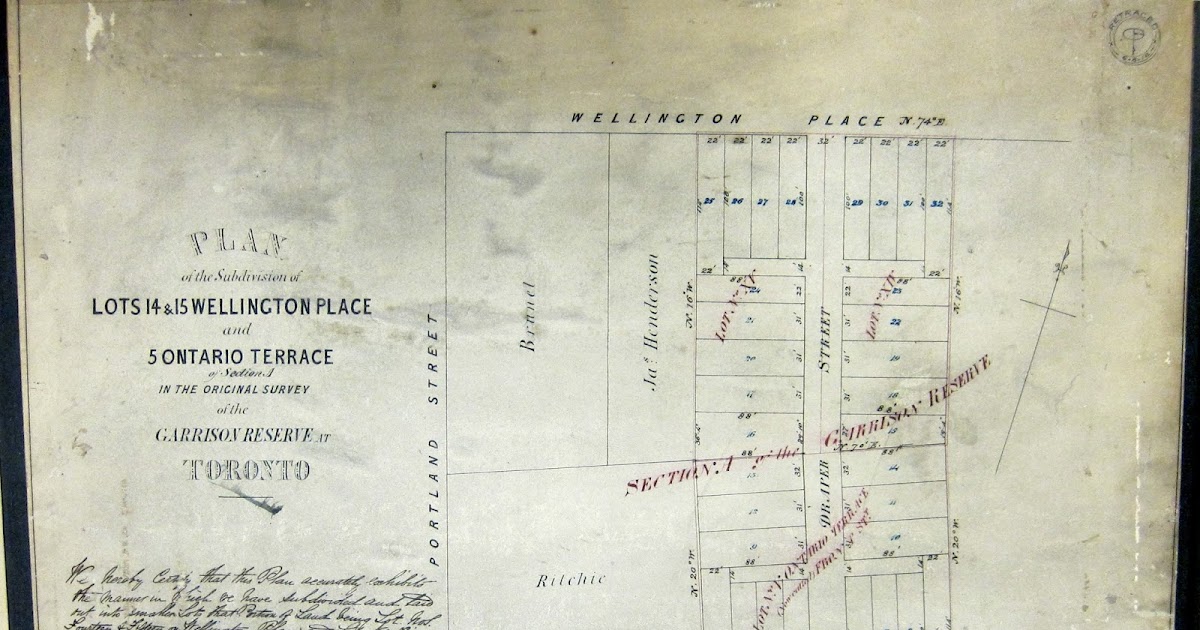 RETRACED
WELLINGTON PLACE N. 74° E.
22' 22' 22' 22' 32' 22' 22' 22' 22'
25 26 27 28 29 30 31 32
PLAN
of the Subdivision of
LOTS 14 & 15 WELLINGTON PLACE
and
5 ONTARIO TERRACE
of Section A
IN THE ORIGINAL SURVEY
of the
GARRISON RESERVE AT
TORONTO
PORTLAND STREET
Brunel
Jas Henderson
Ritchie
N. 16° W.
N. 16° W.
N. 20° W.
N. 20° W.
DRAPER STREET
SECTION. A of the GARRISON RESERVE
N. 70° E.
22' 88' 88' 22'
24 23
22
20 19
17 18
16 15
88' 88'
13 14
12 11
9 10
88' 88'
22' 22'
We, hereby Certify that this Plan accurately exhibits
the manner in which we have subdivided and laid
out into smaller Lots that Portion of Land being Lot Nos.
Fourteen & Fifteen on Wellington